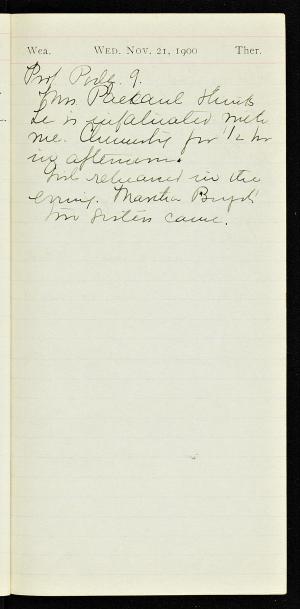 Wea. WED. NOV. 21, 1900 Ther.
Prof 9.
Mrs. Packard thinks
he is infatuated with
me. Chemistry for 1/2 hr
in afternoon.
rehearsed in the
evening. Martha Boyd's
two sisters came.